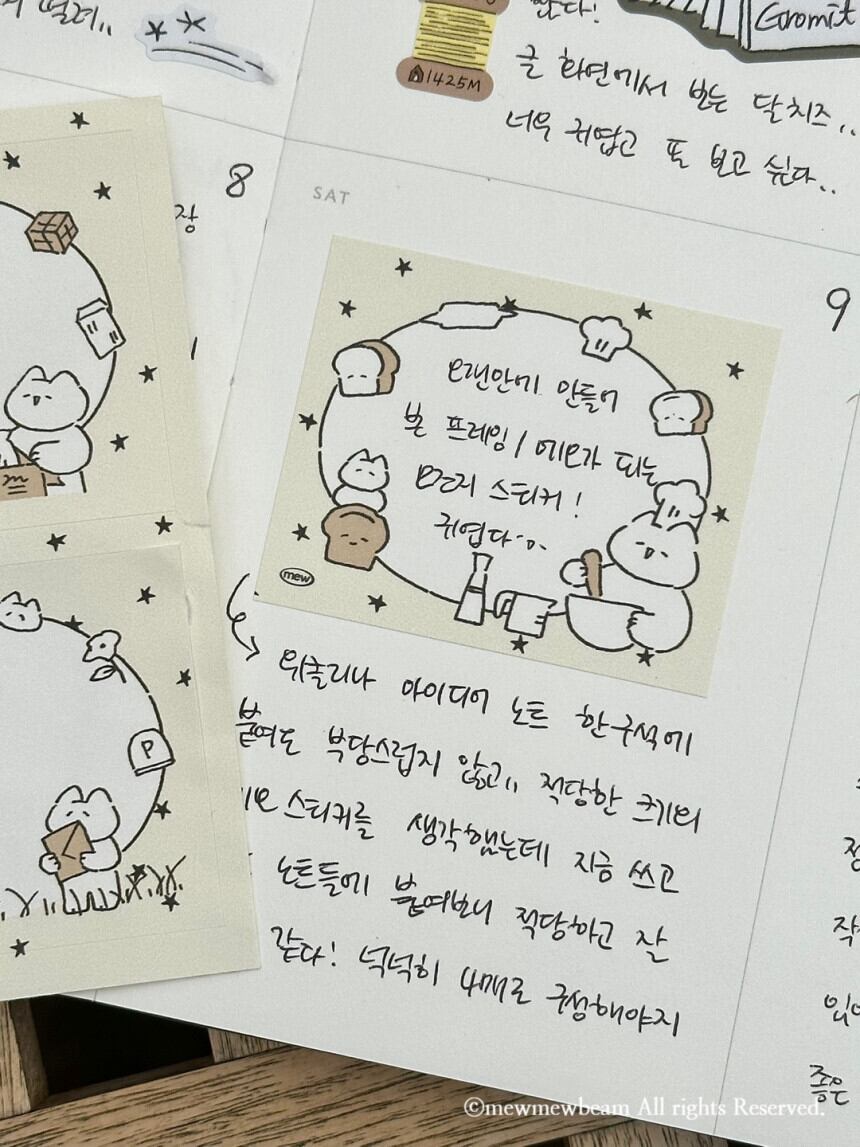 떨려..
1425M
Gromit
많다!
큰 화면에서 보는 달 치즈..
너무 귀엽고 또 보고 싶다..
8
장
SAT
9
오랜만에 만들어
본 프레임 / 메모가 되는
모조지 스티커!
귀엽다..
mew
위클리나 아이디어 노트 한 구석에
붙여도 부담스럽지 않고,, 적당한 크기의
스티커를 생각했는데 지금 쓰고
노트들에 붙여보니 적당하고 잘
같다! 넉넉히 4매로 구성해야지
P
m
좋은
©mewmewbeam All rights Reserved.